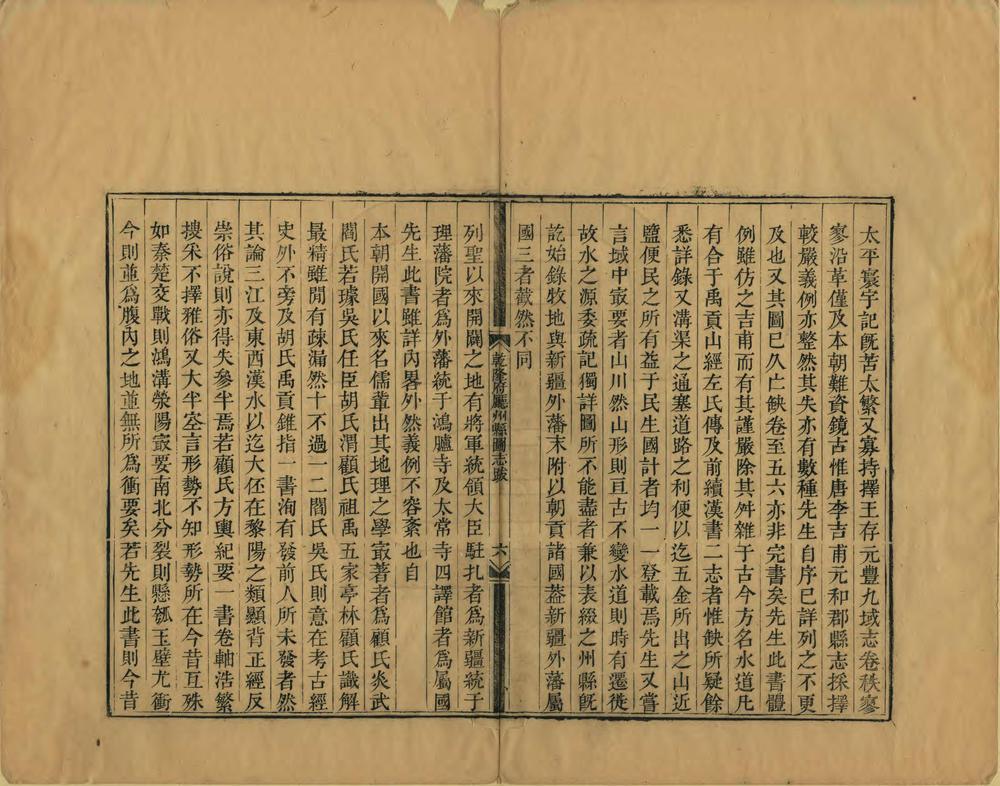 太平寰宇記旣苦太繁又寡持擇王存元豐九域志卷秩寥
寥沿革僅及本朝難資鏡古惟唐李吉甫元和郡縣志採擇
較嚴義例亦整然其失亦有數種先生自序已詳列之不更
及也又其圖已久亡缺卷至五六亦非完書矣先生此書體
例雖仿之吉甫而有其謹嚴除其舛雜于古今方名水道凡
有合于禹貢山經左氏傳及前續漢書二志者惟缺所疑餘
悉詳錄又溝渠之通塞道路之利便以迄五金所出之山近
鹽便民之所有益于民生國計者均一一登載焉先生又嘗
言域中㝡要者山川然山形則亘古不變水道則時有遷徙
故水之源委疏記獨詳圖所不能盡者兼以表綴之州縣旣
訖始錄牧地與新疆外藩末附以朝貢諸國葢新疆外藩屬
國三者截然不同
乾隆府廳州縣圖志跋
六
列聖以來開闢之地有將軍統領大臣駐扎者爲新疆統于
理藩院者爲外藩統于鴻臚寺及太常寺四譯館者爲屬國
先生此書雖詳內畧外然義例不容紊也自
本朝開國以來名儒輩出其地理之學㝡著者爲顧氏炎武
閻氏若璩吳氏任臣胡氏渭顧氏祖禹五家亭林顧氏識解
最精雖閒有疎漏然十不過一二閻氏吳氏則意在考古經
史外不旁及胡氏禹貢錐指一書洵有發前人所未發者然
其論三江及東西漢水以迄大伾在黎陽之類顯背正經反
崇俗說則亦得失參半焉若顧氏方輿紀要一書卷軸浩繁
搜采不擇雅俗又大半空言形勢不知形勢所在今昔互殊
如秦楚交戰則鴻溝滎陽㝡要南北分裂則懸瓠玉壁尤衝
今則並爲腹內之地並無所爲衝要矣若先生此書則今昔